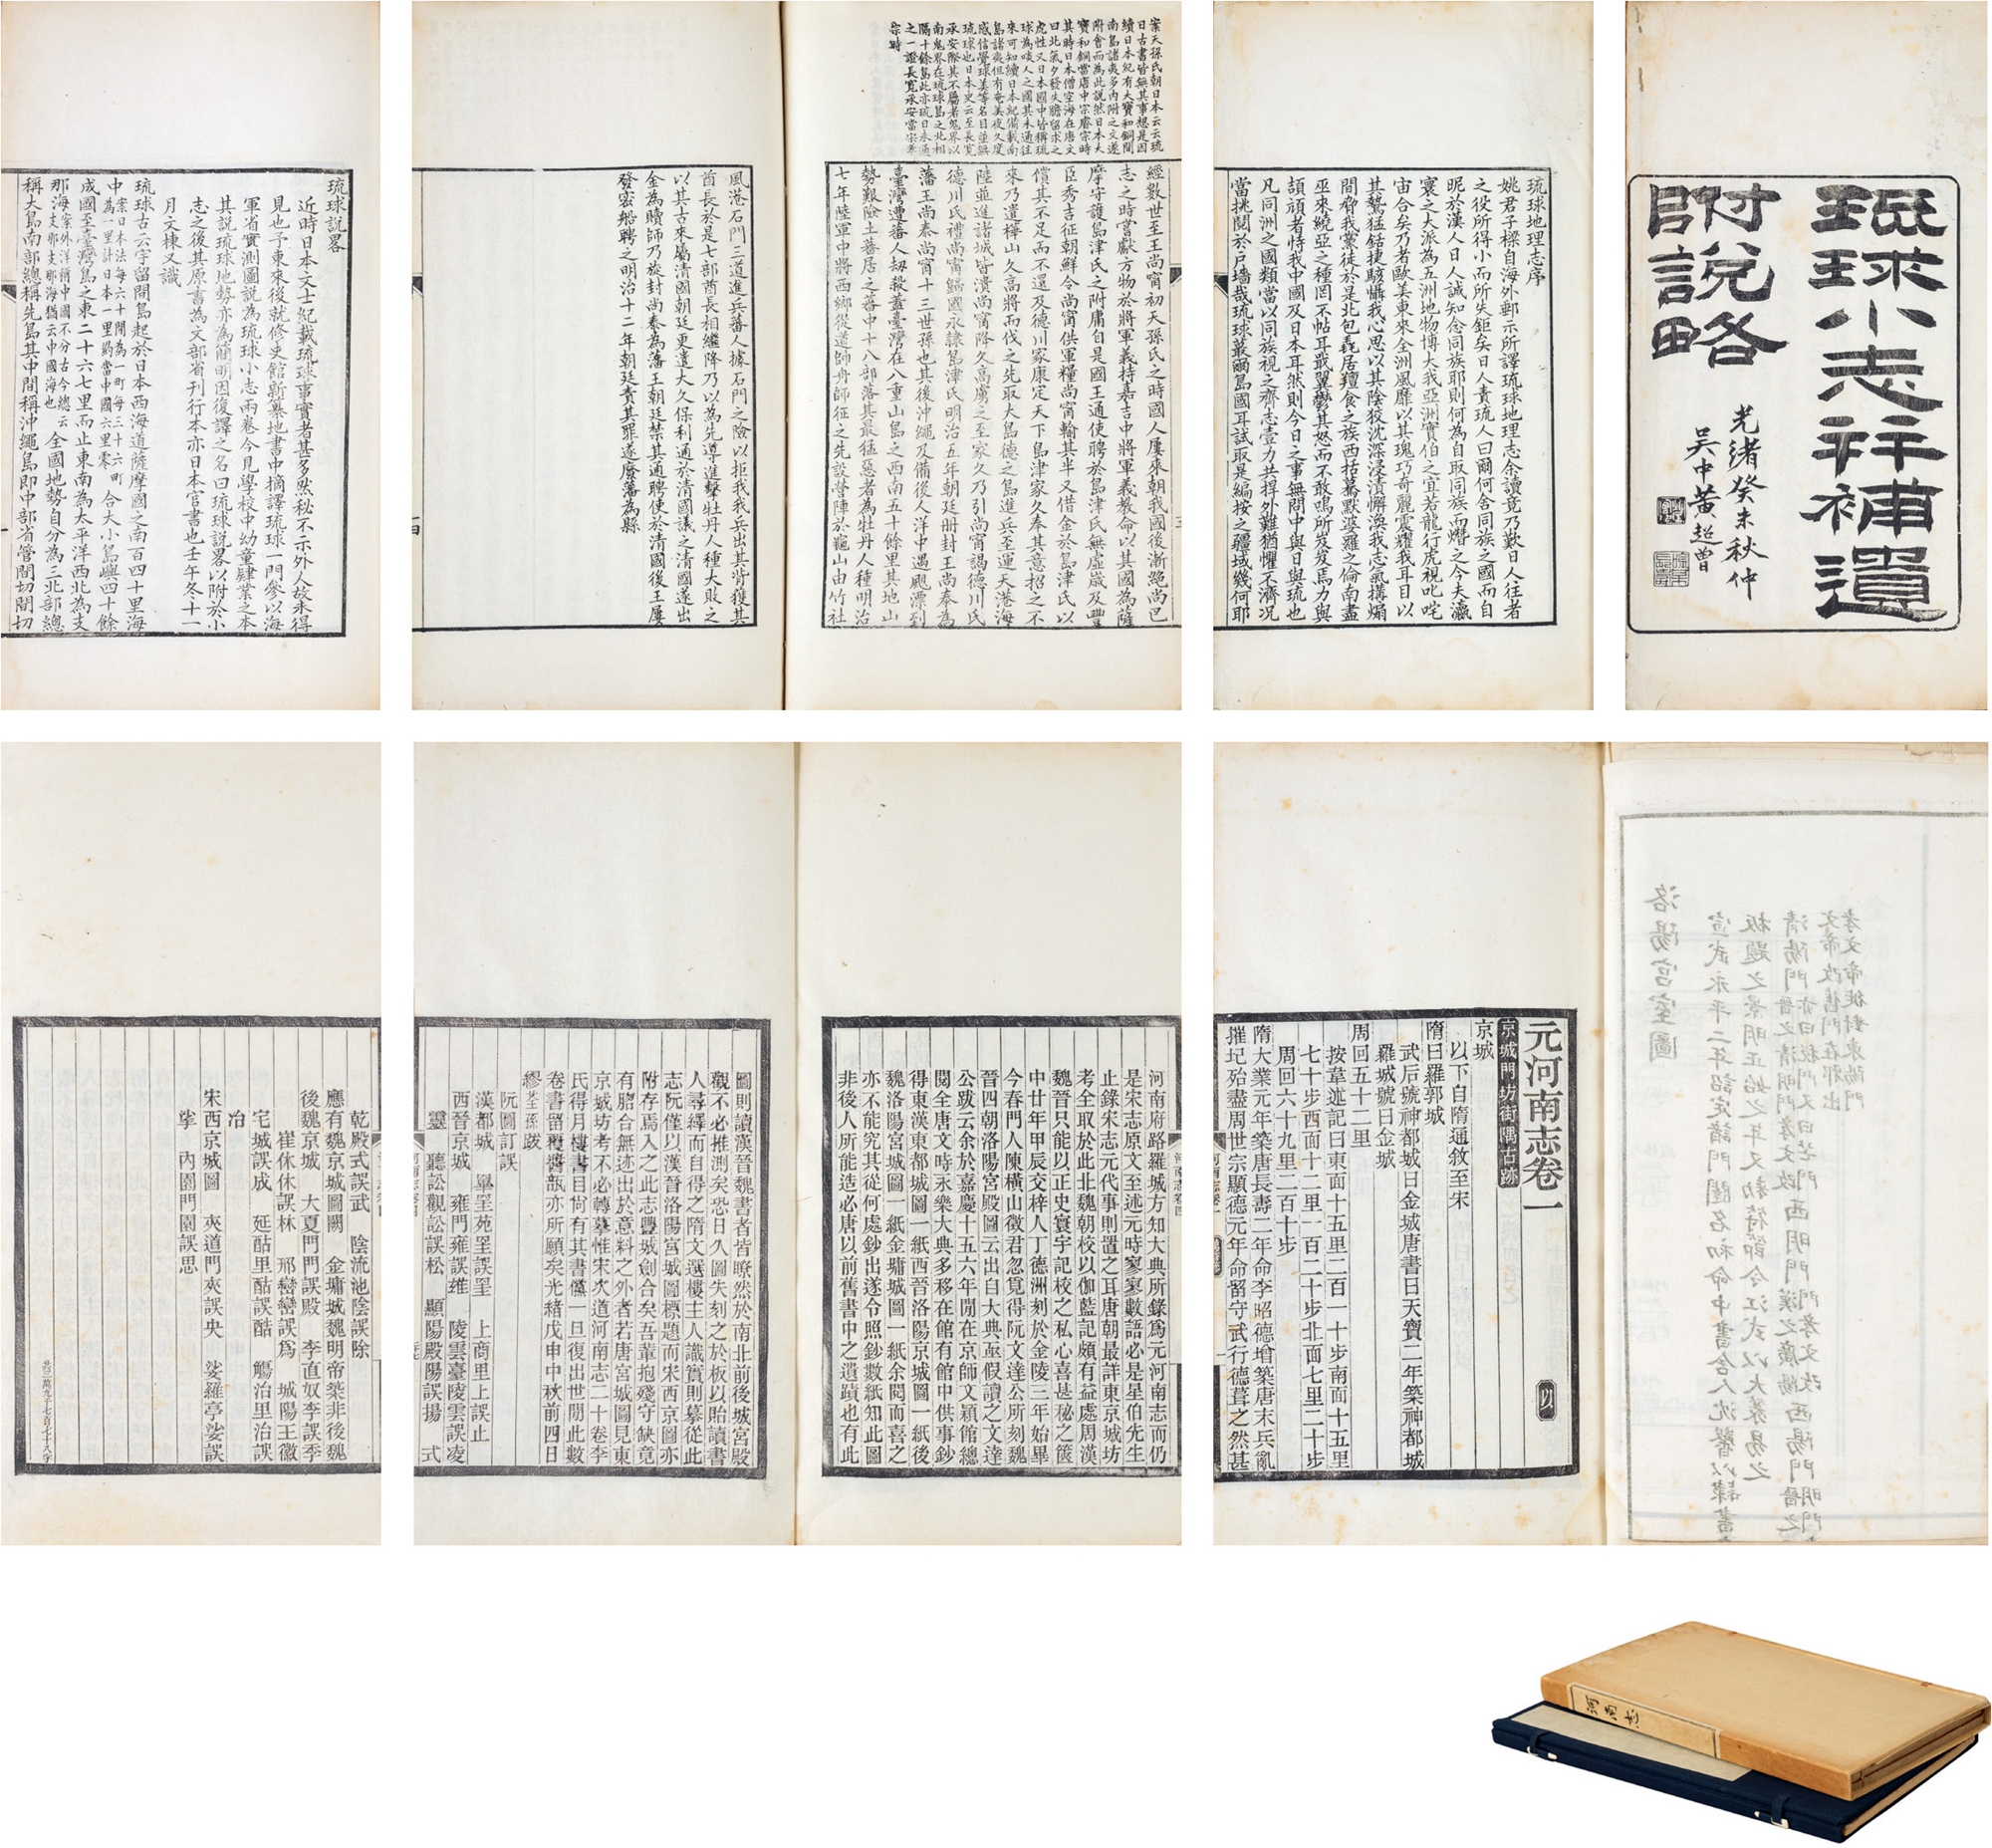 琉球小志並補遺
附說略
光緒癸未秋仲
吳中黃超曾
琉球地理志序
姚君子樑自海外郵示所譯琉球地理志余讀竟乃歎日人往者
之役所得小而所失鉅矣日人責琉人曰爾何舍同族之國而自
昵於漢人日人誠知念同族耶則何為自取同族而
寰之大派為五洲地物博大我亞洲實伯之宜若龍行虎視叱咤
宙合矣乃者歐美東來全洲風靡以其瑰巧奇麗震耀我耳目以
其鷙猛銛捷駭懾我心思以其陰狡沈深浸漬懈渙我志氣搆煽
間脅我黨徒於是北包毳居羶食之族西括驀默婆羅之倫南盡
巫來繞亞之種罔不帖耳戢翼鬱其怒而不敢鳴所岌岌焉力與
頡頏者恃我中國及日本耳然則今日之事無問中與日與琉也
凡同洲之國類當以同族視之齊志壹力共捍外難猶懼不濟況
當挑閱於戶墻哉琉球蕞爾島國耳試取是編按之疆域幾何耶
案天孫氏朝日本云云琉
日古書皆無其事想是因
續日本紀有大寶和銅間
南島諸夷多內附之文遂
附會而為此說然日本大
寶和銅當唐中宗睿宗時
其時日本僧空海在唐文
曰北氣夕發失膽留求之
虎性又日本國中皆稱琉
球為啖人之國其未通往
來可知續日本紀備載南
島諸夷但有奄美夜久度
感信覺球美等名目並無
琉球也日本史云至長寬
承安際其不屬者鬼界以
南鬼界在琉球島之北相
隔十餘島此亦琉日未通
之一證長寬承安當宋孝
宗時
經數世至王尚甯初天孫氏之時國人屢來朝我國後漸絕尚巴
志之時嘗獻方物於將軍義持嘉吉中將軍義教命以其國為薩
摩守護島津氏之附庸自是國王通使聘於島津氏無虛歲及豐
臣秀吉征朝鮮令尚甯供軍糧尚甯輸其半又借金於島津氏以
償其不足而不還及德川家康定天下島津家久奉其意招之不
來乃遣樺山久高將而伐之先取大島德之島進兵至運天港海
陸並進諸城皆潰尚甯降久高虜之至家久乃引尚甯謁德川氏
德川氏禮尚甯歸國永隸島津氏明治五年朝廷冊封王尚泰為
藩王尚泰尚甯十三世孫也其後沖繩及備後人洋中遇颶漂到
臺灣遭蕃人劫殺蓋臺灣在八重山島之西南五十餘里其地山
勢艱險土蕃居之蕃中十八部落其最猛惡者為牡丹人種明治
七年陸軍中將西鄉從道帥舟師征之先設營陣於龜山由竹社
風港石門三道進兵蕃人據石門之險以拒我我兵出其背獲其
酋長於是七部酋長相繼降乃以為先導進擊牡丹人種大敗之
以其古來屬清國朝廷更遣大久保利通於清國議之清國遂出
金為贖師乃旋封尚泰為藩王朝廷禁其通聘使於清國後王屢
發密船聘之明治十二年朝廷責其罪遂廢藩為縣
琉球說畧
近時日本文士紀載琉球事實者甚多然秘不示外人故未得
見也予東來後就修史館新纂地書中摘譯琉球一門參以海
軍省實測圖說為琉球小志兩卷今見學校中幼童肄業之本
其說琉球地勢亦為簡明因復譯之名曰琉球說畧以附於小
志之後其原書為文部省刊行本亦日本官書也壬午冬十一
月文棟又識
琉球古云宇留間島起於日本西海道薩摩國之南百四十里海
中案日本法每六十間為一町每三十六町為一里計日本一里約當中國六里零合大小島嶼四十餘
成國至臺灣島之東二十六七里而止東南為太平洋西北為支
那海案外洋稱中國不分古今總云支那支那海猶云中國海也全國地勢自分為三北部總
稱大島南部總稱先島其中間稱沖繩島即中部省管間切間切
洛陽宮室圖
元河南志卷一
京城門坊街隅古蹟
京城
以下自隋通敘至宋
隋曰羅郭城
武后號神都城曰金城唐書曰天寶二年築神都城
羅城號曰金城
周回五十二里
按韋述記曰東面十五里二百一十步南面十五里
七十步西面十二里一百二十步北面七里二十步
周回六十九里二百十步
隋大業元年築唐長壽二年命李昭德增築唐末兵亂
摧圮殆盡周世宗顯德元年命留守武行德葺之然甚
河南府路羅城方知大典所錄為元河南志而仍
是宋志原文至述元時寥寥數語必是星伯先生
止錄宋志元代事則置之耳唐朝最詳東京城坊
考全取於此北魏朝校以伽藍記頗有益處周漢
魏晉只能以正史寰宇記校之私心喜甚秘之篋
中廿年甲辰交梓人丁德洲刻於金陵三年始畢
今春門人陳橫山徵君忽覓得阮文達公所刻魏
晉四朝洛陽宮殿圖云出自大典亟假讀之文達
公跋云余於嘉慶十五六年閒在京師文穎館總
閱全唐文時永樂大典多移在館有館中供事鈔
得東漢東都城圖一紙西晉洛陽京城圖一紙後
魏洛陽宮城圖一紙金墉城圖一紙余閱而喜之
亦不能究其從何處鈔出遂令照鈔數紙知此圖
非後人所能造必唐以前舊書中之遺蹟也有此
圖則讀漢晉魏書者皆暸然於南北前後城宮殿
觀不必推測矣恐日久圖失刻之於板以貽讀書
人尋繹而自得之隋文選樓主人識實則摹從此
志阮僅以漢晉洛陽宮城圖標題而宋西京圖亦
附存焉入之此志豐城劍合矣吾輩抱殘守缺竟
有脗合無迹出於意料之外者若唐宮城圖見東
京城坊考不必轉摹惟宋次道河南志二十卷李
氏得月樓書目尚有其書儻一旦復出世閒此數
卷書留覆醬瓿亦所願矣光緒戊申中秋前四日
繆荃孫跋
阮圖訂誤
漢都城　罼罣苑罣誤罜　上商里上誤止
西晉京城　雍門雍誤維　陵雲臺陵雲誤凌
靈　聽訟觀訟誤松　顯陽殿陽誤揚　式
乾殿式誤武　陰流池陰誤除
應有魏京城圖闕　金墉城魏明帝築非後魏
後魏京城　大夏門門誤殿　李直奴李誤季
崔休休誤林　邢巒巒誤為　城陽王徽
宅城誤成　延酤里酤誤酷　觴治里治誤
冶
宋西京城圖　夾道門夾誤央　娑羅亭娑誤
挲　內園門園誤思
河南志